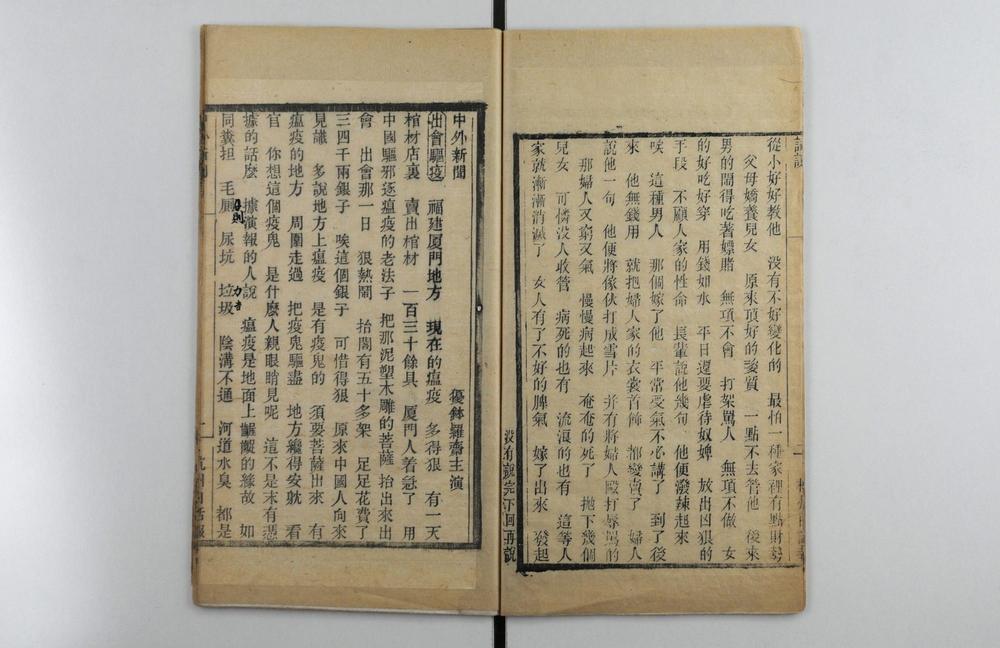 從小好好教他　沒有不好變化的　最怕一種家裡有點財勢
父母嬌養兒女　原來頂好的姿質　一點不去管他　後來
男的鬧得吃著嫖賭　無項不會　打架罵人　無項不做　女
的好吃好穿　用錢如水　平日還要虐待奴婢　放出凶狠的
手段　不顧人家的性命　長輩說他幾句　他便潑辣起來
唉　這種男人　那個嫁了他　平常受氣不必講了　到了後
來　他無錢用　就把婦人家的衣裳首飾　都變賣了　婦人
說他一句　他便將傢伙打成雪片　并有將婦人毆打辱罵的
那婦人又窮又氣　慢慢病起來　奄奄的死了　拋下幾個
兒女　可憐沒人收管　病死的也有　流浪的也有　這等人
家就漸漸消滅了　女人有了不好的脾氣　嫁了出來　發起
沒有說完下回再說
中外新聞
優鉢羅齋主演
出會驅疫　福建厦門地方　現在的瘟疫　多得狠　有一天
棺材店裏　賣出棺材　一百三十餘具　厦門人着急了　用
中國驅邪逐瘟疫的老法子　把那泥塑木雕的菩薩　抬出來出
會　出會那一日　狠熱鬧　抬閣有五十多架　足足花費了
三四千兩銀子　唉這個銀子　可惜得狠　原來中國人向來
見識　多說地方上瘟疫　是有疫鬼的　須要菩薩出來　有
瘟疫的地方　周圍走過　把疫鬼驅盡　地方纔得安躭　看
官　你想這個疫鬼　是什麼人親眼睛見呢　這不是末有憑
據的話麽　據演報的人說　瘟疫是地面上齷齪的緣故　如
同糞担　毛厠　尿坑　垃圾　陰溝不通　河道水臭　都是